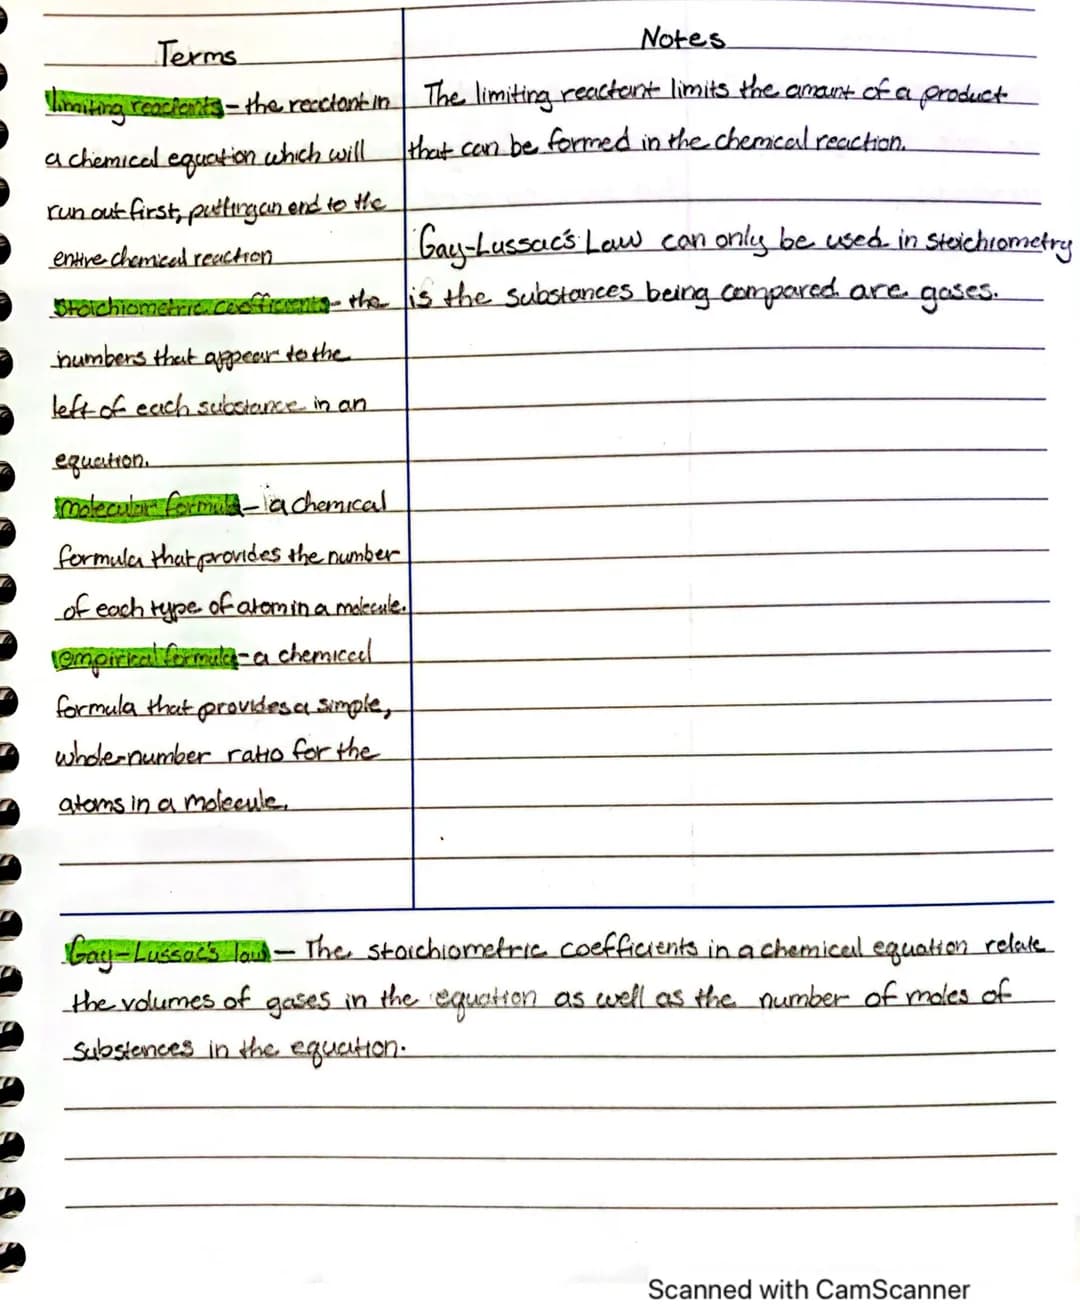 Terms
limiting reactants - the reactant in
a chemical equation which will
run out first, putting an end to the
entire chemical reaction
Stoichiometric coefficients - the
numbers that appear to the
left of each substance in an
equation.
molecular formula - a chemical
formula that provides the number
of each type of atom in a molecule.
empirical formula - a chemical
formula that provides a simple,
whole-number ratio for the
atoms in a molecule.
Notes
The limiting reactant limits the amount of a product
that can be formed in the chemical reaction.
Gay-Lussac's Law can only be used in stoichiometry
is the substances being compared are gases.
Gay-Lussac's law - The stoichiometric coefficients in a chemical equation relate
the volumes of gases in the equation as well as the number of moles of
substances in the equation.
Scanned with CamScanner